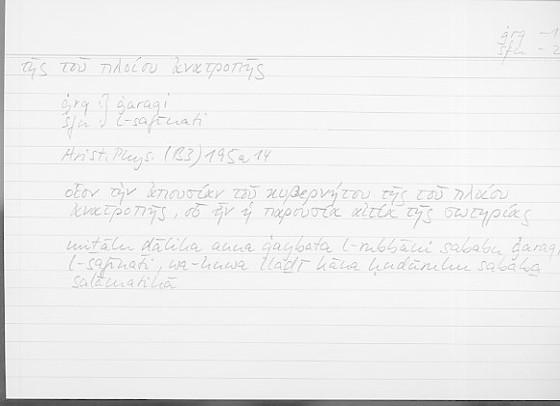 ġrq – 1
sfn – 2
τῆς τοῦ πλοίου ἀνατροπῆς
ġrq :} ġaraqi
sfn :} l-safīnati
Arist. Phys. (B3) 195a14
οἷον τὴν ἀπουσίαν τοῦ κυβερνήτου τῆς τοῦ πλοίου
ἀνατροπῆς, οὗ ἦν ἡ παρουσία αἰτία τῆς σωτηρίας
miṯālu ḏālika anna ġaybata l-rubbāni sababu ġaraqi
l-safīnati, wa-huwa llaḏī kāna ḥuḍūruhu sababa
salāmatihā